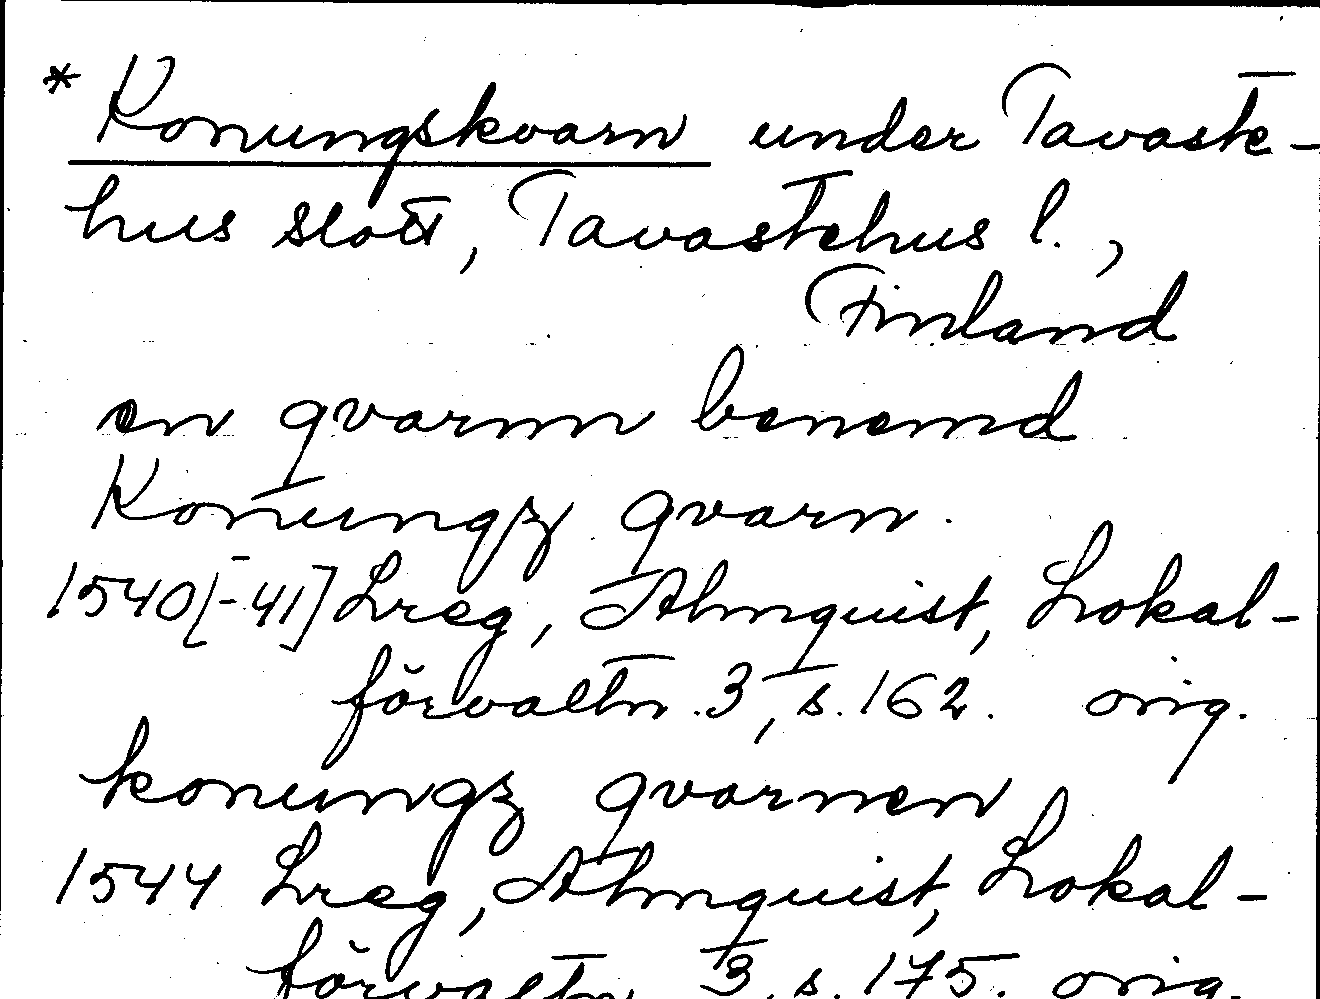 * Konungskvarn under Tavaste-
hus slott, Tavastehus l.,
Finland
en qvarnn benemd
Konungz qvarn.
1540[-41] Lreg, Almquist, Lokal-
förvaltn. 3, s. 162. orig.
konungz qvarnen
1544 Lreg, Almquist, Lokal-
förvaltn. 3, s. 175. orig.